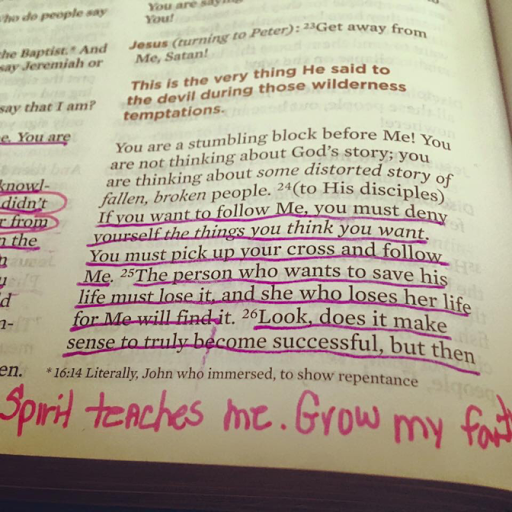 who do people say
the Baptist.* And
say Jeremiah or
say that I am?
e. You are
knowl-
didn't
r from
n the
d
n-
en.
You are saying
You!
Jesus (turning to Peter): 23Get away from
Me, Satan!
This is the very thing He said to
the devil during those wilderness
temptations.
You are a stumbling block before Me! You
are not thinking about God's story; you
are thinking about some distorted story of
fallen, broken people. 24(to His disciples)
If you want to follow Me, you must deny
yourself the things you think you want.
You must pick up your cross and follow
Me. 25The person who wants to save his
life must lose it, and she who loses her life
for Me will find it. 26Look, does it make
sense to truly become successful, but then
*16:14 Literally, John who immersed, to show repentance
Spirit teaches me. Grow my faith